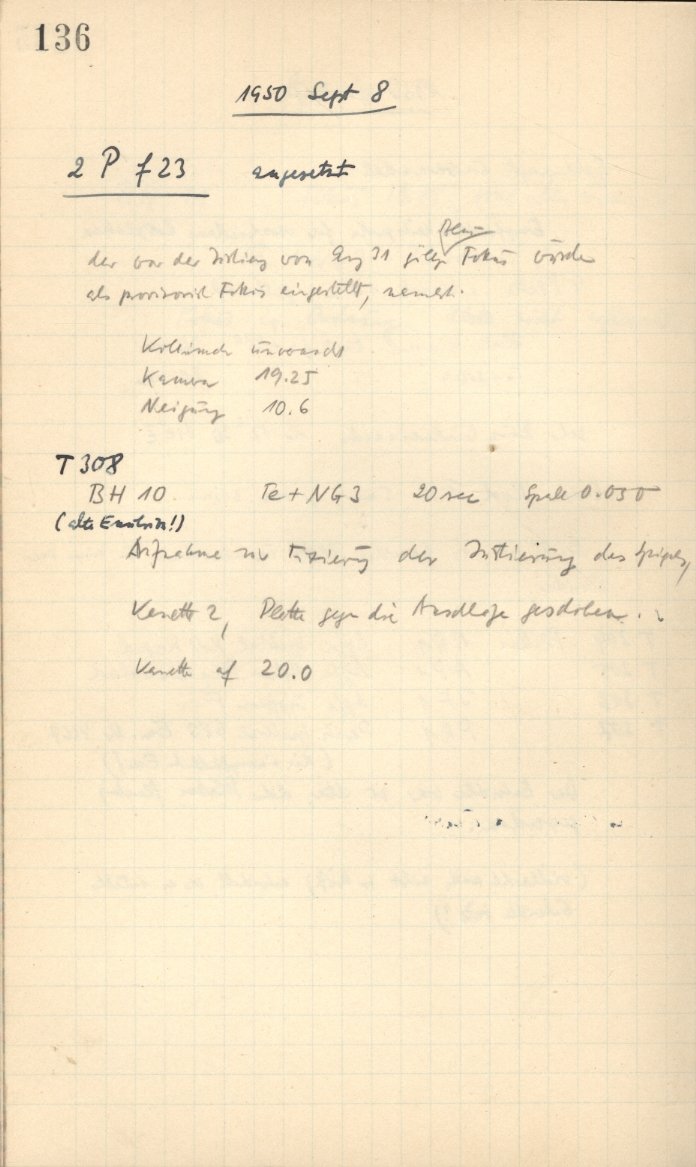 136
1950 Sept 8
2 P f 23 angesetzt
der vor der Justierg von Aug 31 gültige Fokus wurde
als provisorisch Fokus eingestellt, nämlich.
Kollimator unverändert
Kamera 19.25
Neigung 10.6
T 308
BH 10. Te + NG3 20 sec Spalt 0.030
(alte Emulsion!)
Aufnahme zur Fixierung der Justierung des Spiegels,
Kassette 2, Platte gegen die Anschläge geschoben.
Kassette auf 20.0